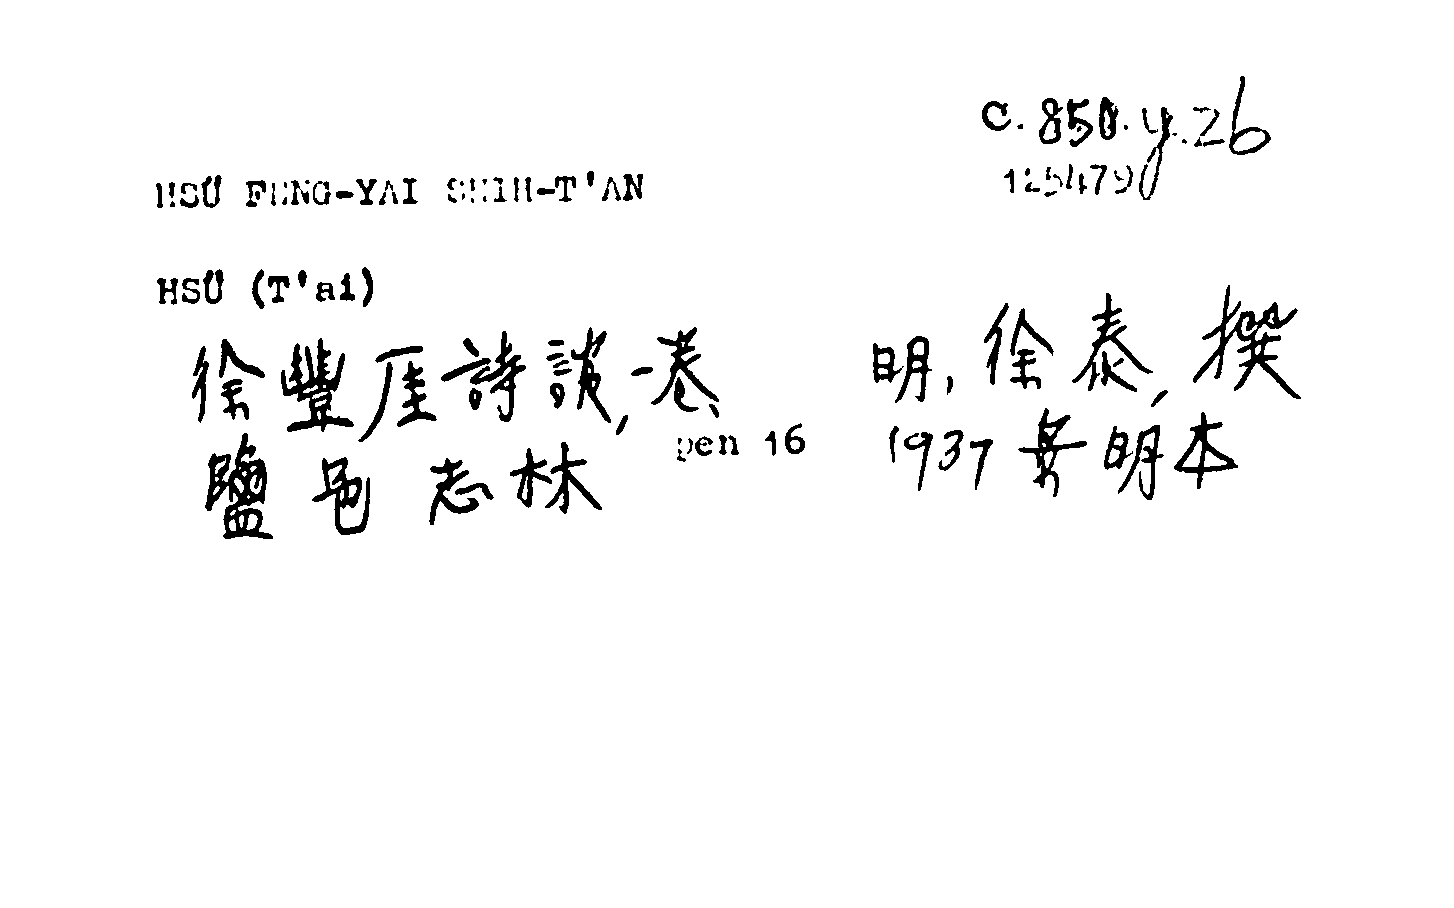 C.850.y.26
125479
HSÜ FENG-YAI SHIH-T'AN
HSÜ (T'ai)
徐豐厓詩談,一卷 明,徐泰,撰
鹽邑志林 pen 16 1937 景明本